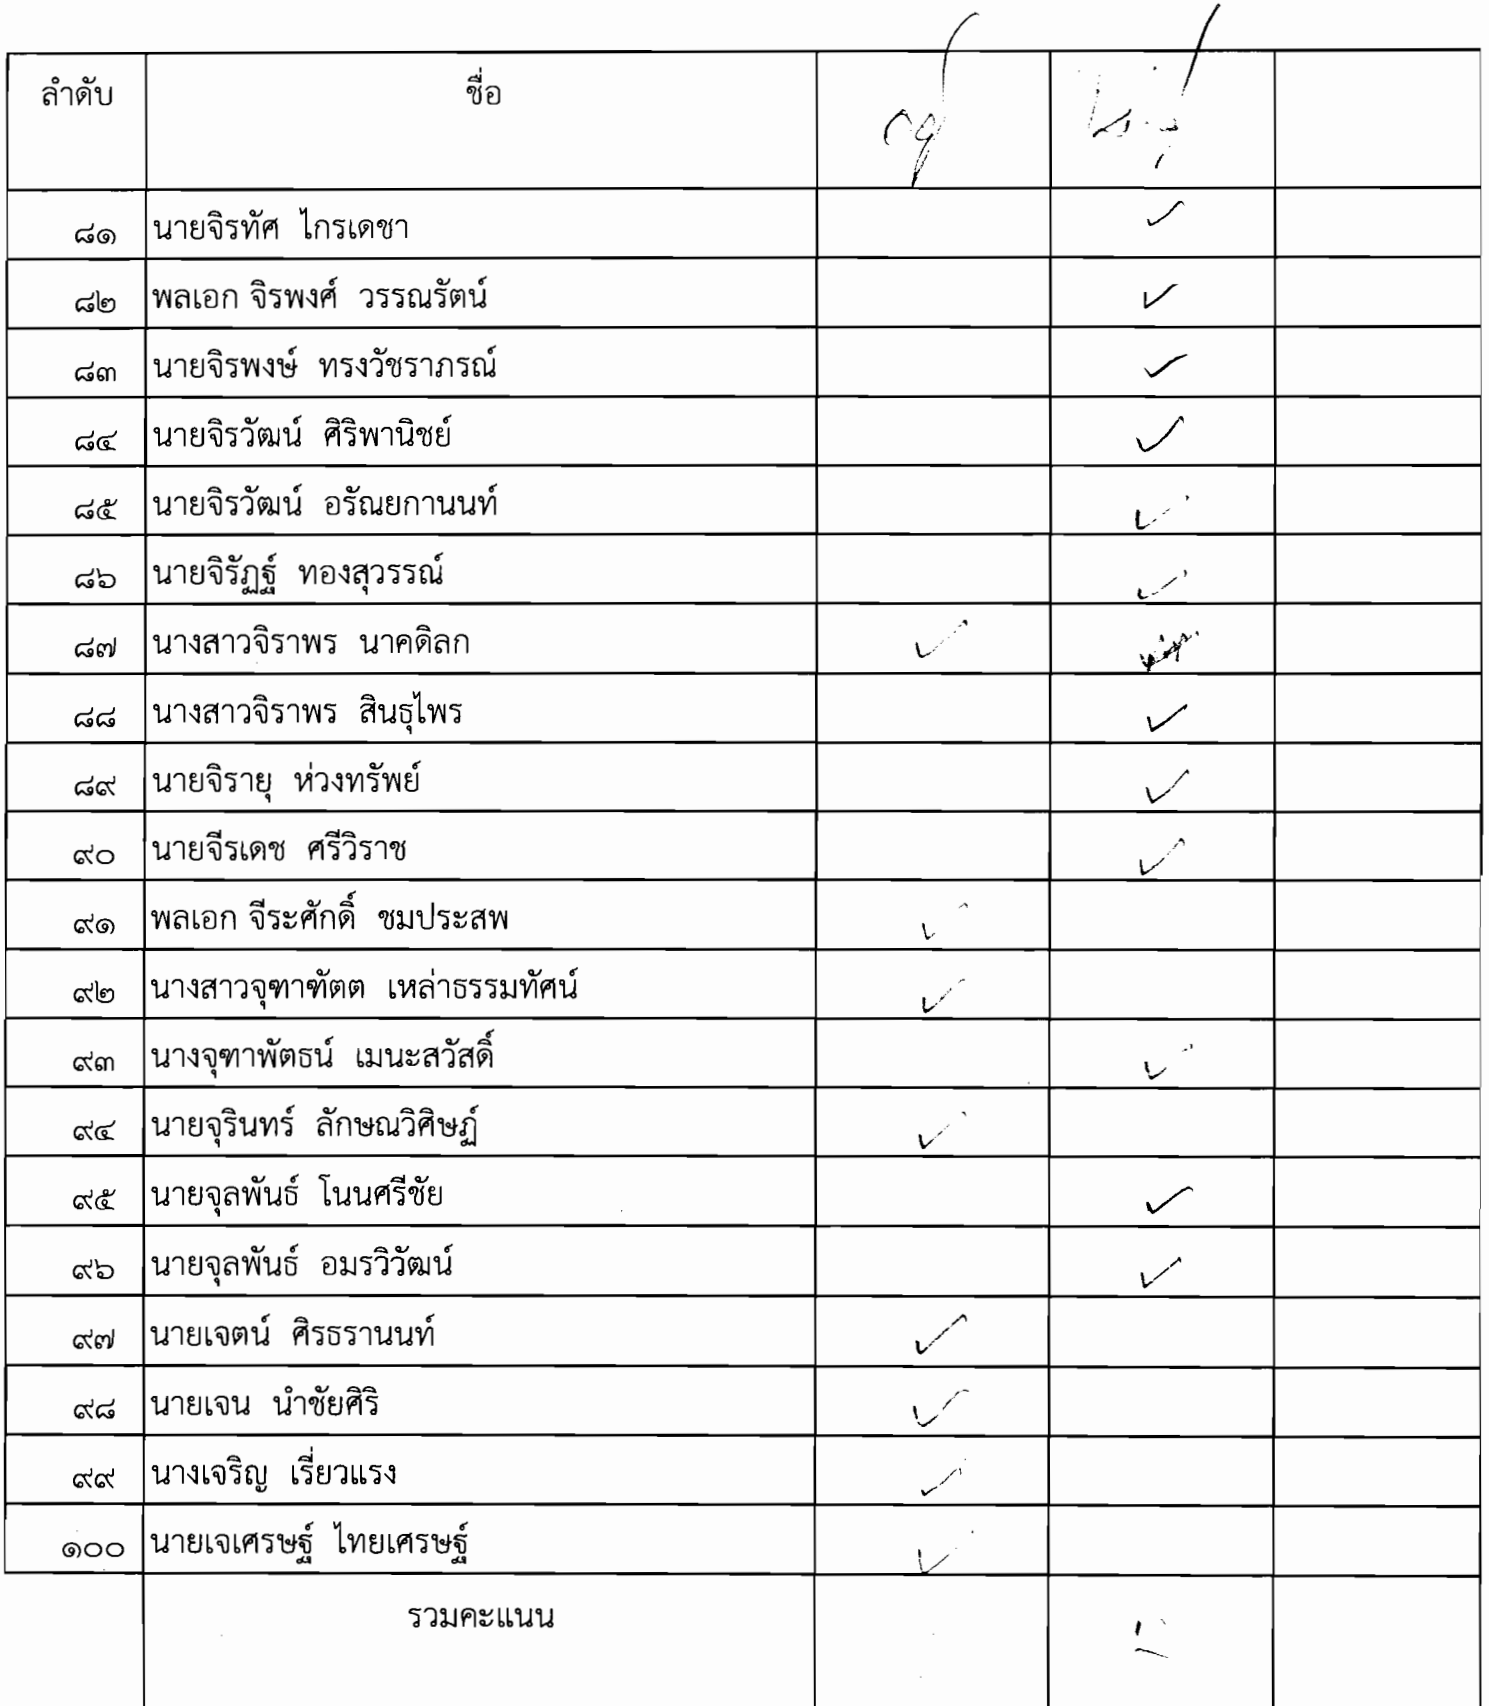 ลำดับ ชื่อ
๘๑ นายจิรทัศ ไกรเดชา ✓
๘๒ พลเอก จิรพงศ์ วรรณรัตน์ ✓
๘๓ นายจิรพงษ์ ทรงวัชราภรณ์ ✓
๘๔ นายจิรวัฒน์ ศิริพานิชย์ ✓
๘๕ นายจิรวัฒน์ อรัณยกานนท์ ✓
๘๖ นายจิรัฏฐ์ ทองสุวรรณ์ ✓
๘๗ นางสาวจิราพร นาคดิลก ✓
๘๘ นางสาวจิราพร สินธุไพร ✓
๘๙ นายจิรายุ ห่วงทรัพย์ ✓
๙๐ นายจีรเดช ศรีวิราช ✓
๙๑ พลเอก จีระศักดิ์ ชมประสพ ✓
๙๒ นางสาวจุฑาฑัตต เหล่าธรรมทัศน์ ✓
๙๓ นางจุฑาพัตธน์ เมนะสวัสดิ์ ✓
๙๔ นายจุรินทร์ ลักษณวิศิษฏ์ ✓
๙๕ นายจุลพันธ์ โนนศรีชัย ✓
๙๖ นายจุลพันธ์ อมรวิวัฒน์ ✓
๙๗ นายเจตน์ ศิรธรานนท์ ✓
๙๘ นายเจน นำชัยศิริ ✓
๙๙ นางเจริญ เรี่ยวแรง ✓
๑๐๐ นายเจเศรษฐ์ ไทยเศรษฐ์ ✓
รวมคะแนน